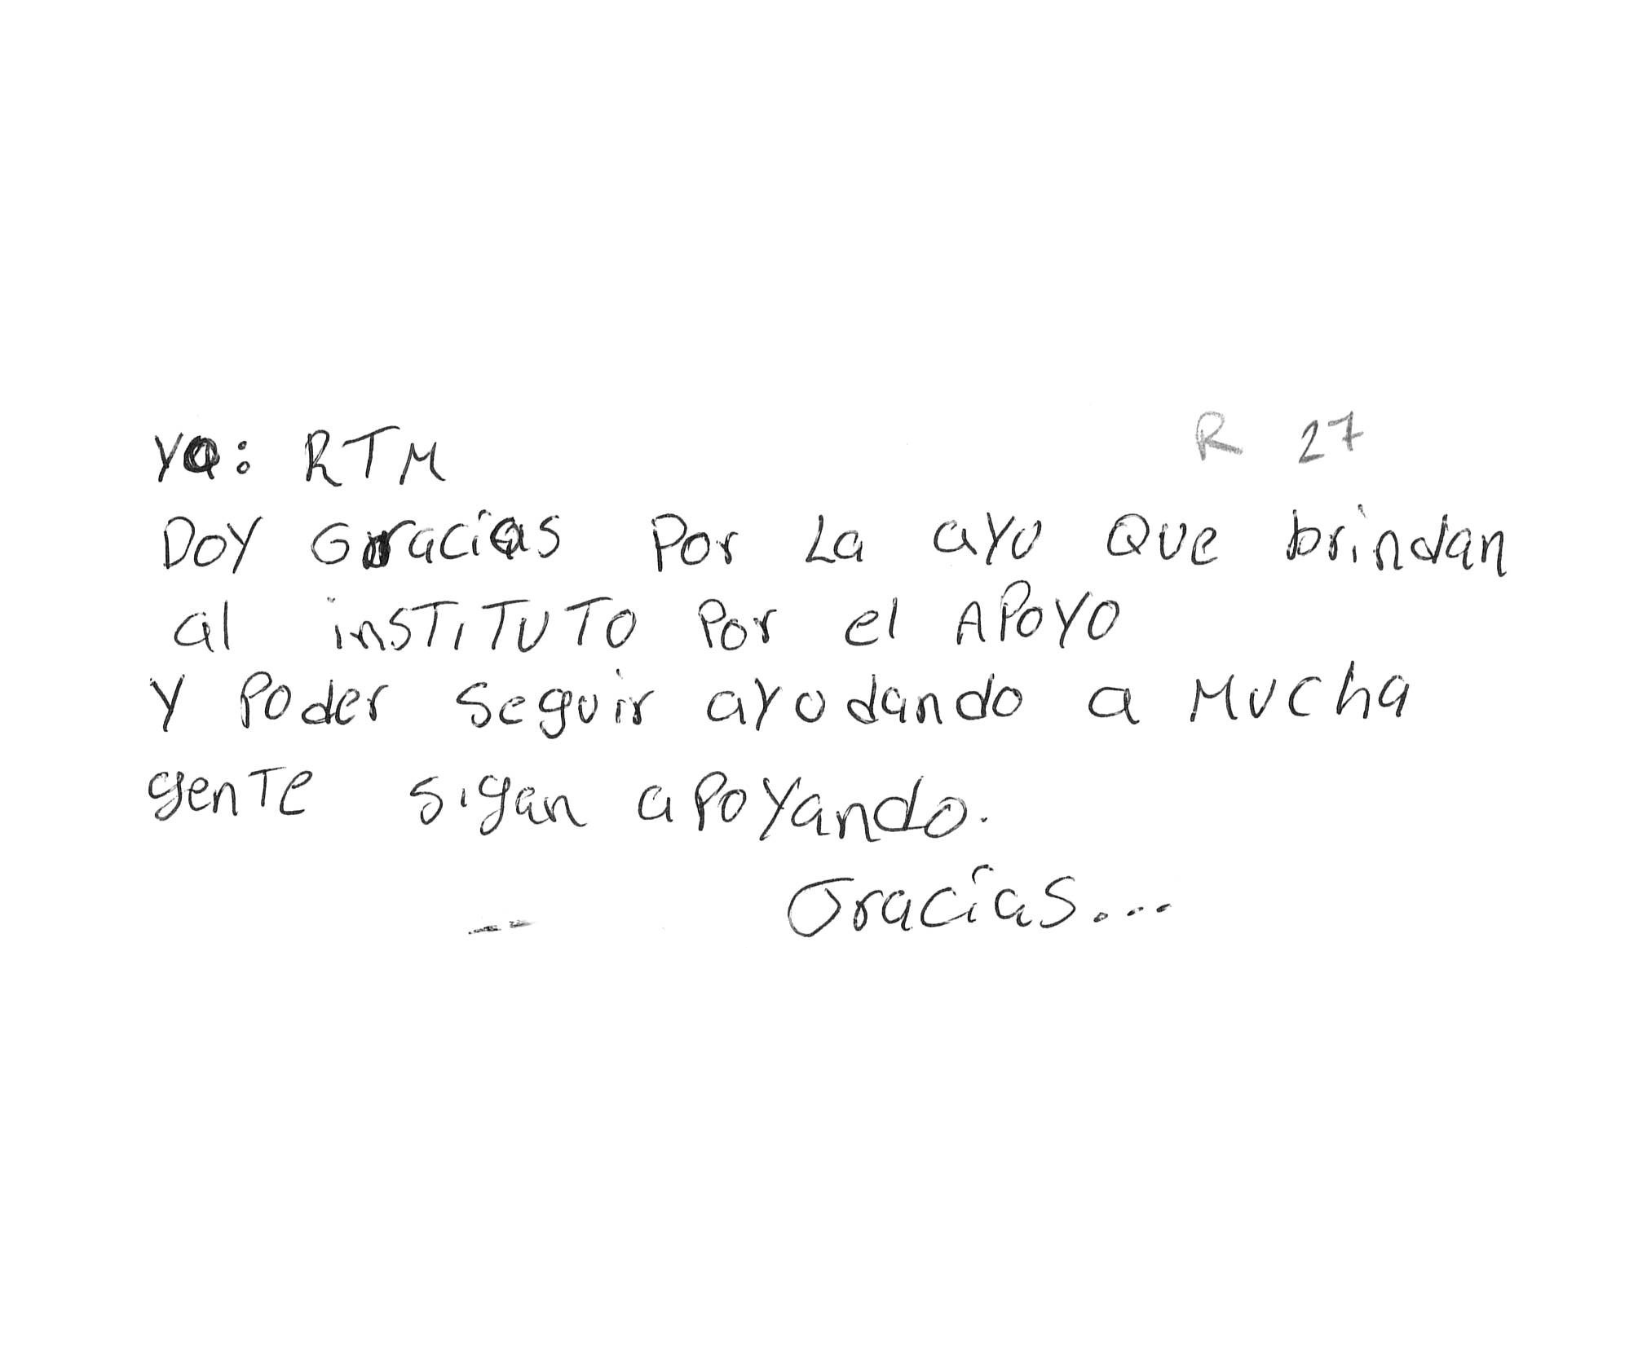 Yo: RTM R 27
Doy Gracias Por La ayu Que brindan
al insTiTUTO Por el APOYO
Y Poder Seguir ayudando a MUcha
genTe sigan apoyando.
Gracias...